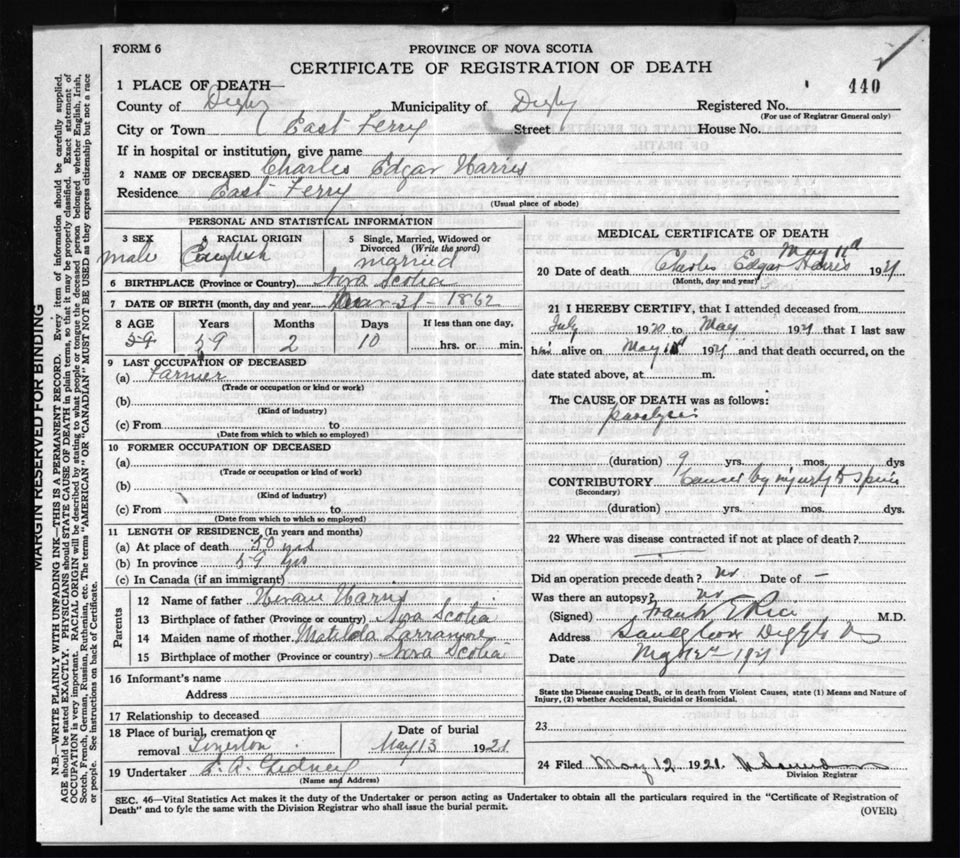 FORM 6
PROVINCE OF NOVA SCOTIA
CERTIFICATE OF REGISTRATION OF DEATH
440
1 PLACE OF DEATH—
County of Digby Municipality of Digby Registered No.
(For use of Registrar General only)
City or Town East Ferry Street House No.
If in hospital or institution, give name
2 NAME OF DECEASED Charles Edgar Harris
Residence East Ferry
(Usual place of abode)
PERSONAL AND STATISTICAL INFORMATION
3 SEX 4 RACIAL ORIGIN 5 Single, Married, Widowed or Divorced (Write the word)
male English married
6 BIRTHPLACE (Province or Country) Nova Scotia
7 DATE OF BIRTH (month, day and year) Mar 31 1862
8 AGE Years Months Days If less than one day,
59 59 2 10 hrs. or min.
9 LAST OCCUPATION OF DECEASED
(a) Farmer
(Trade or occupation or kind or work)
(b)
(Kind of industry)
(c) From to
(Date from which to which so employed)
10 FORMER OCCUPATION OF DECEASED
(a)
(Trade or occupation or kind of work)
(b)
(Kind of industry)
(c) From to
(Date from which to which so employed)
11 LENGTH OF RESIDENCE (In years and months)
(a) At place of death 50 yrs
(b) In province 59 yrs
(c) In Canada (if an immigrant)
Parents
12 Name of father Harris
13 Birthplace of father (Province or country) Nova Scotia
14 Maiden name of mother Matilda
15 Birthplace of mother (Province or country) Nova Scotia
16 Informant's name
Address
17 Relationship to deceased
18 Place of burial, cremation or removal Tiverton Date of burial May 13 1921
19 Undertaker Gidney
(Name and Address)
MEDICAL CERTIFICATE OF DEATH
May 11th
20 Date of death Charles Edgar Harris 1921
(Month, day and year)
21 I HEREBY CERTIFY, that I attended deceased from
July 1920 to May 1921 that I last saw
him alive on May 1921 and that death occurred, on the
date stated above, at m.
The CAUSE OF DEATH was as follows:
paralysis
(duration) 9 yrs. mos. dys
CONTRIBUTORY Caused by injury to spine
(Secondary)
(duration) yrs. mos. dys.
22 Where was disease contracted if not at place of death?
Did an operation precede death? no Date of —
Was there an autopsy? no
(Signed) Frank E Rice M.D.
Address Sandy Cove Digby
Date 1921
State the Disease causing Death, or in death from Violent Causes, state (1) Means and Nature of
Injury, (2) whether Accidental, Suicidal or Homicidal.
23
24 Filed May 12 1921
Division Registrar
SEC. 46—Vital Statistics Act makes it the duty of the Undertaker or person acting as Undertaker to obtain all the particulars required in the "Certificate of Registration of
Death" and to fyle the same with the Division Registrar who shall issue the burial permit.
(OVER)
MARGIN RESERVED FOR BINDING
N.B.—WRITE PLAINLY WITH UNFADING INK—THIS IS A PERMANENT RECORD. Every item of information should be carefully supplied.
AGE should be stated EXACTLY. PHYSICIANS should STATE CAUSE OF DEATH in plain terms, so that it may be properly classified. Exact statement of
OCCUPATION is very important. RACIAL ORIGIN will be described by stating to what people or tongue the deceased person belonged whether English, Irish,
Scotch, French, German, Russian, Ruthenian, etc. The terms "AMERICAN" OR "CANADIAN" MUST NOT BE USED as they express citizenship but not a race
or people. See instructions on back of Certificate.